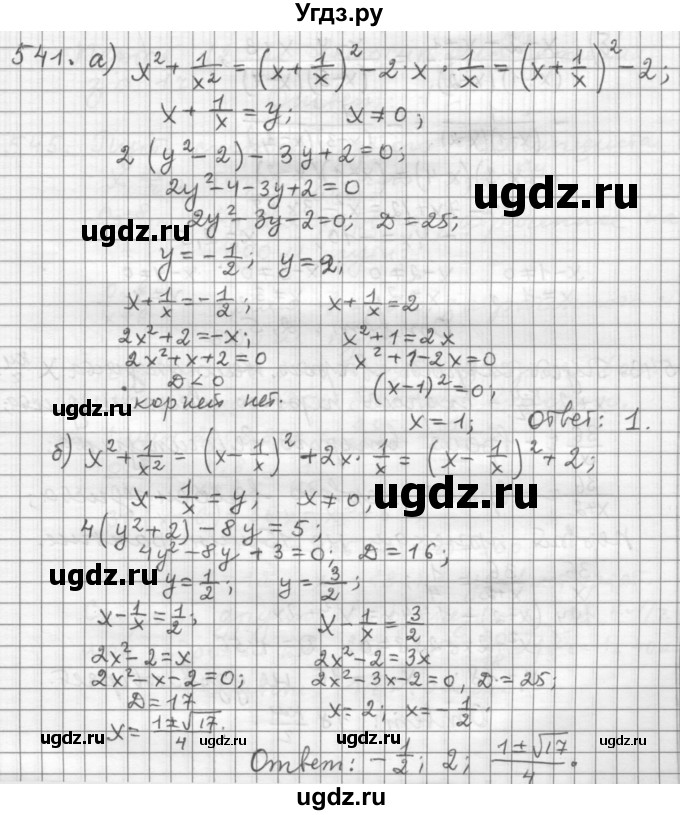 Угдз.ру
541. а) x² + 1/x² = (x + 1/x)² - 2 · x · 1/x = (x + 1/x)² - 2;
x + 1/x = y; x ≠ 0;
2 (y² - 2) - 3y + 2 = 0;
2y² - 4 - 3y + 2 = 0
ugdz.ru
2y² - 3y - 2 = 0; D = 25;
ugdz.ru
y = - 1/2; y = 2;
x + 1/x = - 1/2; x + 1/x = 2
2x² + 2 = -x; x² + 1 = 2x
2x² + x + 2 = 0 x² + 1 - 2x = 0
D < 0 (x - 1)² = 0;
ugdz.ru
корней нет.
x = 1; Ответ: 1.
б) x² + 1/x² = (x - 1/x)² + 2x · 1/x = (x - 1/x)² + 2;
x - 1/x = y; x ≠ 0;
ugdz.ru
4(y² + 2) - 8y = 5;
4y² - 8y + 3 = 0; D = 16;
ugdz.ru
y = 1/2; y = 3/2;
x - 1/x = 1/2; x - 1/x = 3/2
2x² - 2 = x 2x² - 2 = 3x
2x² - x - 2 = 0; 2x² - 3x - 2 = 0, D = 25;
D = 17 x = 2; x = - 1/2.
x = (1 ± √17)/4.
ugdz.ru ugdz.ru ugdz.ru ugdz.ru
Ответ: - 1/2; 2; (1 ± √17)/4.
ugdz.ru